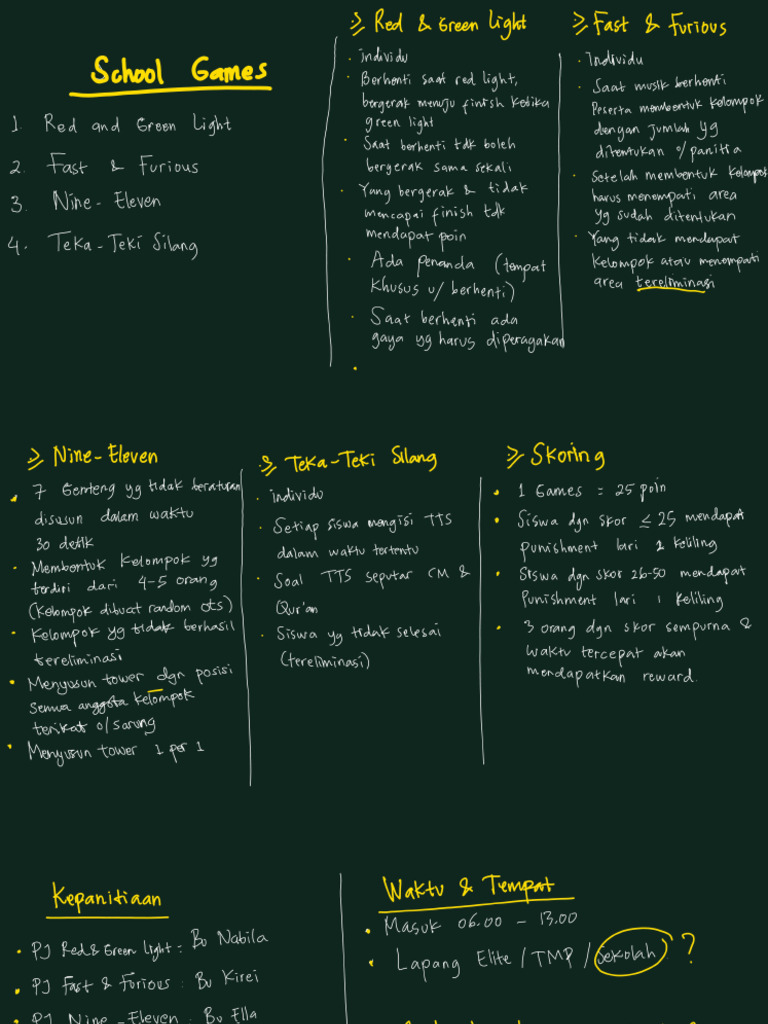 School Games
1. Red and Green Light
2. Fast & Furious
3. Nine-Eleven
4. Teka-Teki Silang
⩾ Red & Green Light
• Individu
• Berhenti saat red light,
bergerak menuju finish ketika
green light
• Saat berhenti tdk boleh
bergerak sama sekali
• Yang bergerak & tidak
mencapai finish tdk
mendapat poin
• Ada penanda (tempat
khusus u/ berhenti)
• Saat berhenti ada
gaya yg harus diperagakan
•
⩾ Fast & Furious
• Individu
• Saat musik berhenti
Peserta membentuk kelompok
dengan jumlah yg
ditentukan o/ panitia
• Setelah membentuk kelompok
harus menempati area
yg sudah ditentukan
• Yang tidak mendapat
kelompok atau menempati
area tereliminasi
⩾ Nine-Eleven
• 7 Genteng yg tidak beraturan
disusun dalam waktu
30 detik
• Membentuk kelompok yg
terdiri dari 4-5 orang
(kelompok dibuat random ots)
• Kelompok yg tidak berhasil
tereliminasi
• Menyusun tower dgn posisi
semua anggota kelompok
terikat o/ sarung
• Menyusun tower 1 per 1
⩾ Teka-Teki Silang
• Individu
• Setiap siswa mengisi TTS
dalam waktu tertentu
• Soal TTS seputar CM &
Qur'an
• Siswa yg tidak selesai
(tereliminasi)
⩾ Skoring
• 1 Games = 25 poin
• Siswa dgn skor ≤ 25 mendapat
punishment lari 2 keliling
• Siswa dgn skor 26-50 mendapat
Punishment lari 1 keliling
• 3 orang dgn skor sempurna &
waktu tercepat akan
mendapatkan reward.
Kepanitiaan
• PJ Red & Green Light : Bu Nabila
• PJ Fast & Furious : Bu Kirei
• PJ Nine-Eleven : Bu Ella
Waktu & Tempat
• Masuk 06.00 - 13.00
• Lapang Elite / TMP / Sekolah ?